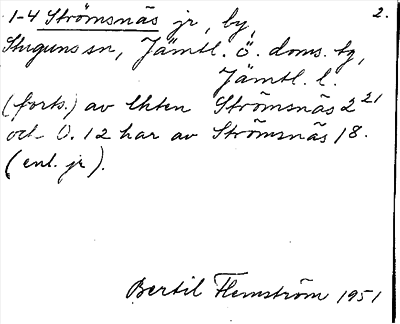 1-4 Strömsnäs jr, by, 2.
Stuguns sn, Jämtl. ö. doms. tg,
Jämtl. l.
(forts.) av lhten Strömsnäs 2²¹
och 0.12 har av Strömsnäs 18.
(enl. jr).
Bertil Flemström 1951